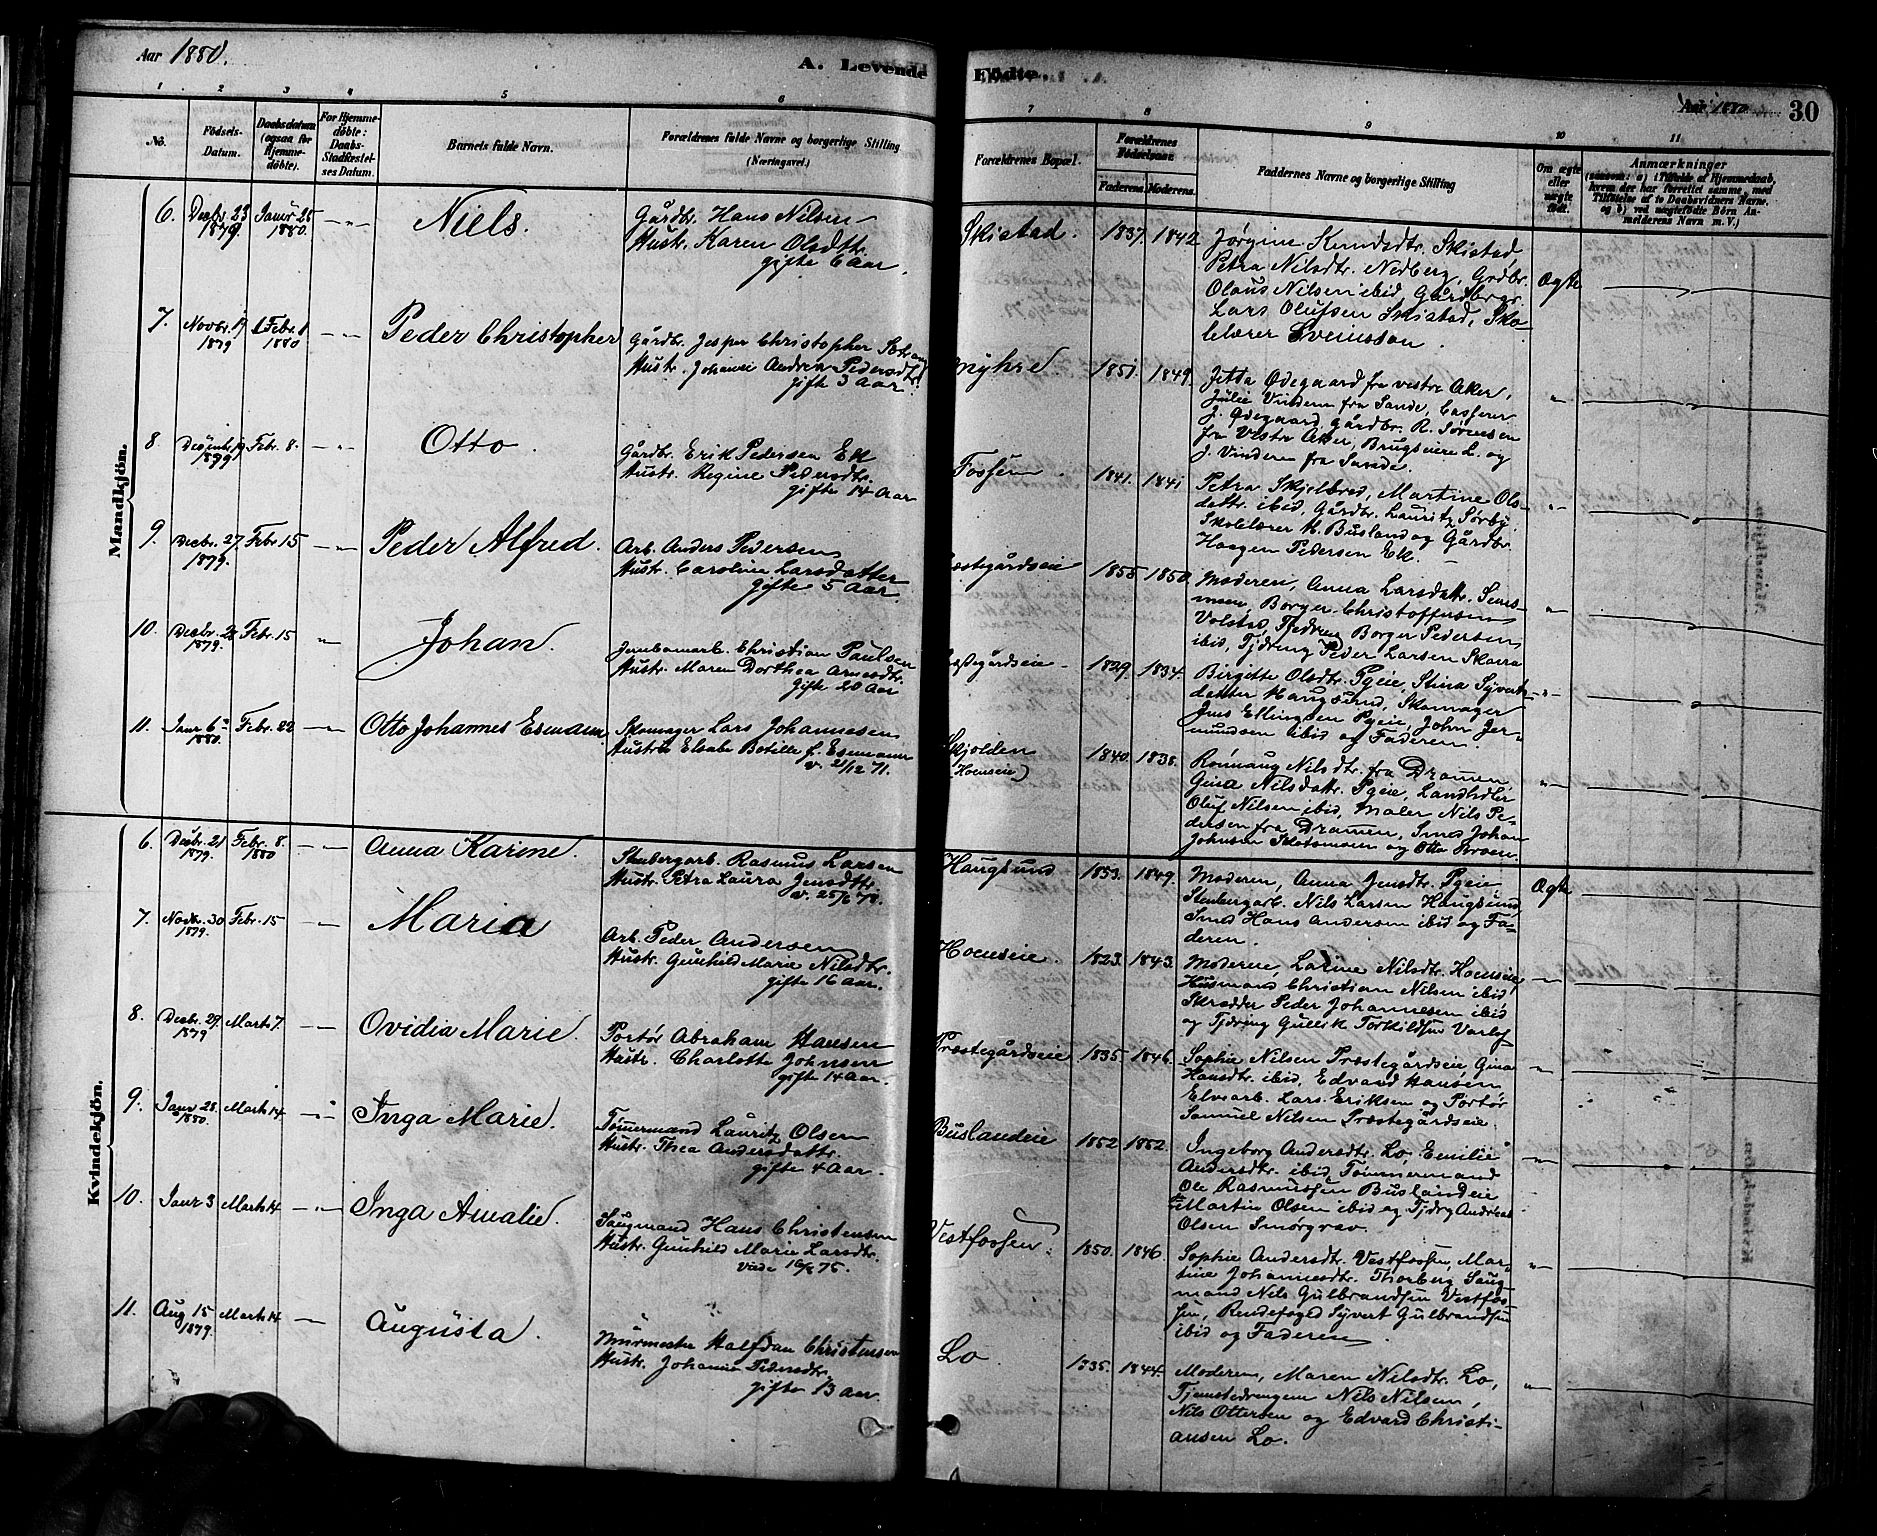 Aar 1880.
A. Levende
Födte.
Aar 1880
30
1 2 3 4 5 6 7 8 9 10 11
No.
Födsels-
Datum.
Daabsdatum
(ogsaa for
Hjemme-
døbte).
For Hjemme-
döbte:
Daabs-
Stadfæstel-
ses Datum.
Barnets fulde Navn.
Forældrenes fulde Navne og borgerlige Stilling
(Næringsvei.)
Forældrenes Bopæl.
Forældrenes
Födselsaar
Faderens. Moderens.
Faddernes Navne og borgerlige Stilling
Om ægte
eller
uægte
født.
Anmærkninger
(saasom: a) i Tilfælde af Hjemmedaab,
hvem der har forrettet samme, med
Tilföielse af to Daabsvidners Navne.
og b) ved uægtefödte Børn An-
melderens Navn m. V.)
Mandkjön.
6. Decbr. 23 1879 Janr 25 1880.
Niels.
Gårdbr. Hans Nilsen
Hustr. Karen Olsdtr.
gifte 6 Aar.
Skistad. 1837. 1842
Jørgine Knudsdtr. Skistad
Petra Nilsdtr. Nedberg, Grdbr.
Olaus Nilsen ibid, Gårdbrgr.
Lars Olufsen Skistad, Sko-
lelærer Sveinsson.
Ægte
7. Novbr. 19 1879 Febr. 1 1880
Peder Christopher
Gårdbr. Jesper Christopher
Hustr. Johanne Andrea Pedersdtr.
gifte 3 Aar.
Myhre. 1851. 1849.
Jetta Ødegaard fra vestre Aker,
Julie Vindern fra Sande, Casserer
J. Ødegaard, gårdbr. R. Sørensen
fra Vestre Aker, Brugseiere L. og
J. Vindern fra Sande.
8 Decbr. 19 1879 Febr. 8.
Otto
Gårdbr. Erik Pedersen Ek
Hustr. Regine Pedersdtr.
gifte 14 Aar
Fossen. 1841. 1841
Petra Skjelbred, Martine Ols-
dattr. ibid, Gårdbr. Lauritz Sørby,
Skolelærer H. Busland og Gårdbr.
Haagen Pedersen Ek.
9. Decbr. 27 1879. Febr. 15
Peder Alfred.
Arb. Anders Pedersen
Hustr. Caroline Larsdatter
gifte 5 Aar.
Præstegårdseie 1855 1850.
Moderen, Anna Larsdatr. Sems-
moen, Borger Christoffersen
Volstad, Tjdreng Borger Pedersen
ibid, Tjdreng Peder Larsen Skarra
10. Decbr. 28 1879. Febr. 15
Johan.
Jernbanarb. Christian Paulsen
Hustr. Maren Dorthea Arnesdtr.
gifte 20 Aar
Præstegårdseie 1829. 1834.
Birgitte Olsdtr. Pgeie, Stina Syverts-
datter Haugsund, Skomager
Jens Ellingsen Pgeie, John Jer-
mundsen ibid og Faderen.
11. Janr 6 1880. Febr. 22
Otto Johannes Esmann.
Skomager Lars Johannesen
Hustru Elsabe Botille f. Esmann
v. 21/12 71.
Skjolden
(Hoenseie)
1840. 1838.
Rønnaug Nilsdtr. fra Dramen,
Gina Nilsdattr. Pgeie, Landhdler
Oluf Nilsen ibid, Maler Nils Pe-
dersen fra Dramen, Smed Johan
Johnsen Skotsmoen og Otto
Kvindekjön.
6. Decbr. 21 1879. Febr. 8. 1880
Anna Karine.
Stenbergarb. Rasmus Larsen
Hustr. Petra Laura Jensdtr.
v. 25/6 78.
Haugsund 1853. 1849.
Moderen, Anna Jensdtr. Pgeie
Stenbergarb. Nils Larsen Haugsund,
Smed Hans Andersen ibid og Fa-
deren.
Ægte
7. Novbr. 30 1879. Febr. 15
Maria
Arb. Peder Andersen
Hustr. Gunhild Marie Nilsdtr.
gifte 16 Aar.
Hoenseie. 1823. 1843.
Moderen, Larine Nilsdtr. Hoenseie,
Husmand Christian Nilsen ibid,
Skrædder Peder Johannesen ibid
og Tjdreng Gullik Torkildsen Varlo
8. Decbr. 29. 1879 Marts 7.
Ovidia Marie.
Portør Abraham Hansen
Hustr. Charlotte Johnsen
gifte 14 Aar.
Præstegårdseie 1835 1846.
Sophie Nilsen Præstegårdseie, Gina
Hansdtr. ibid, Edvard Hansen
Elvearb. Lars Eriksen og Portør
Samuel Nilsen Præstegårdseie.
9. Janr 28. 1880. Marts 14.
Inga Marie.
Tømmermand Lauritz Olsen
Hustr. Thea Andersdattr.
gifte 4 Aar.
Buslandeie 1852 1852.
Ingeborg Andersdtr. Lo, Emilie
Andersdtr. ibid, Tømmermand
Ole Rasmussen Buslandeie
Martin Olsen ibid og Tjdrg Andreas
Olsen Smørgrav.
10. Janr 3 Marts 14.
Inga Amalie.
Saugmand Hans Christensen
Hustr. Gunhild Marie Larsdtr.
viede 16/5 75.
Vestfossen. 1850. 1846.
Sophie Andersdtr. Vestfossen, Mar-
tine Johannesdtr. Thorberg, Saug-
mand Nils Gulbrandsen Vestfos-
sen, Rendefoged Syvert Gulbrandsen
ibid og Faderen.
11. Aug 15 1879. Marts 14.
Augusta.
Murmester Halfdan Christensen
Hustr. Johanne Pedersdtr.
gifte 13 Aar.
Lo. 1835. 1844.
Moderen, Maren Nilsdtr. Lo,
Tjenestedrengene Nils Nilsen,
Nils Ottersen og Edvard Christi-
ansen Lo.